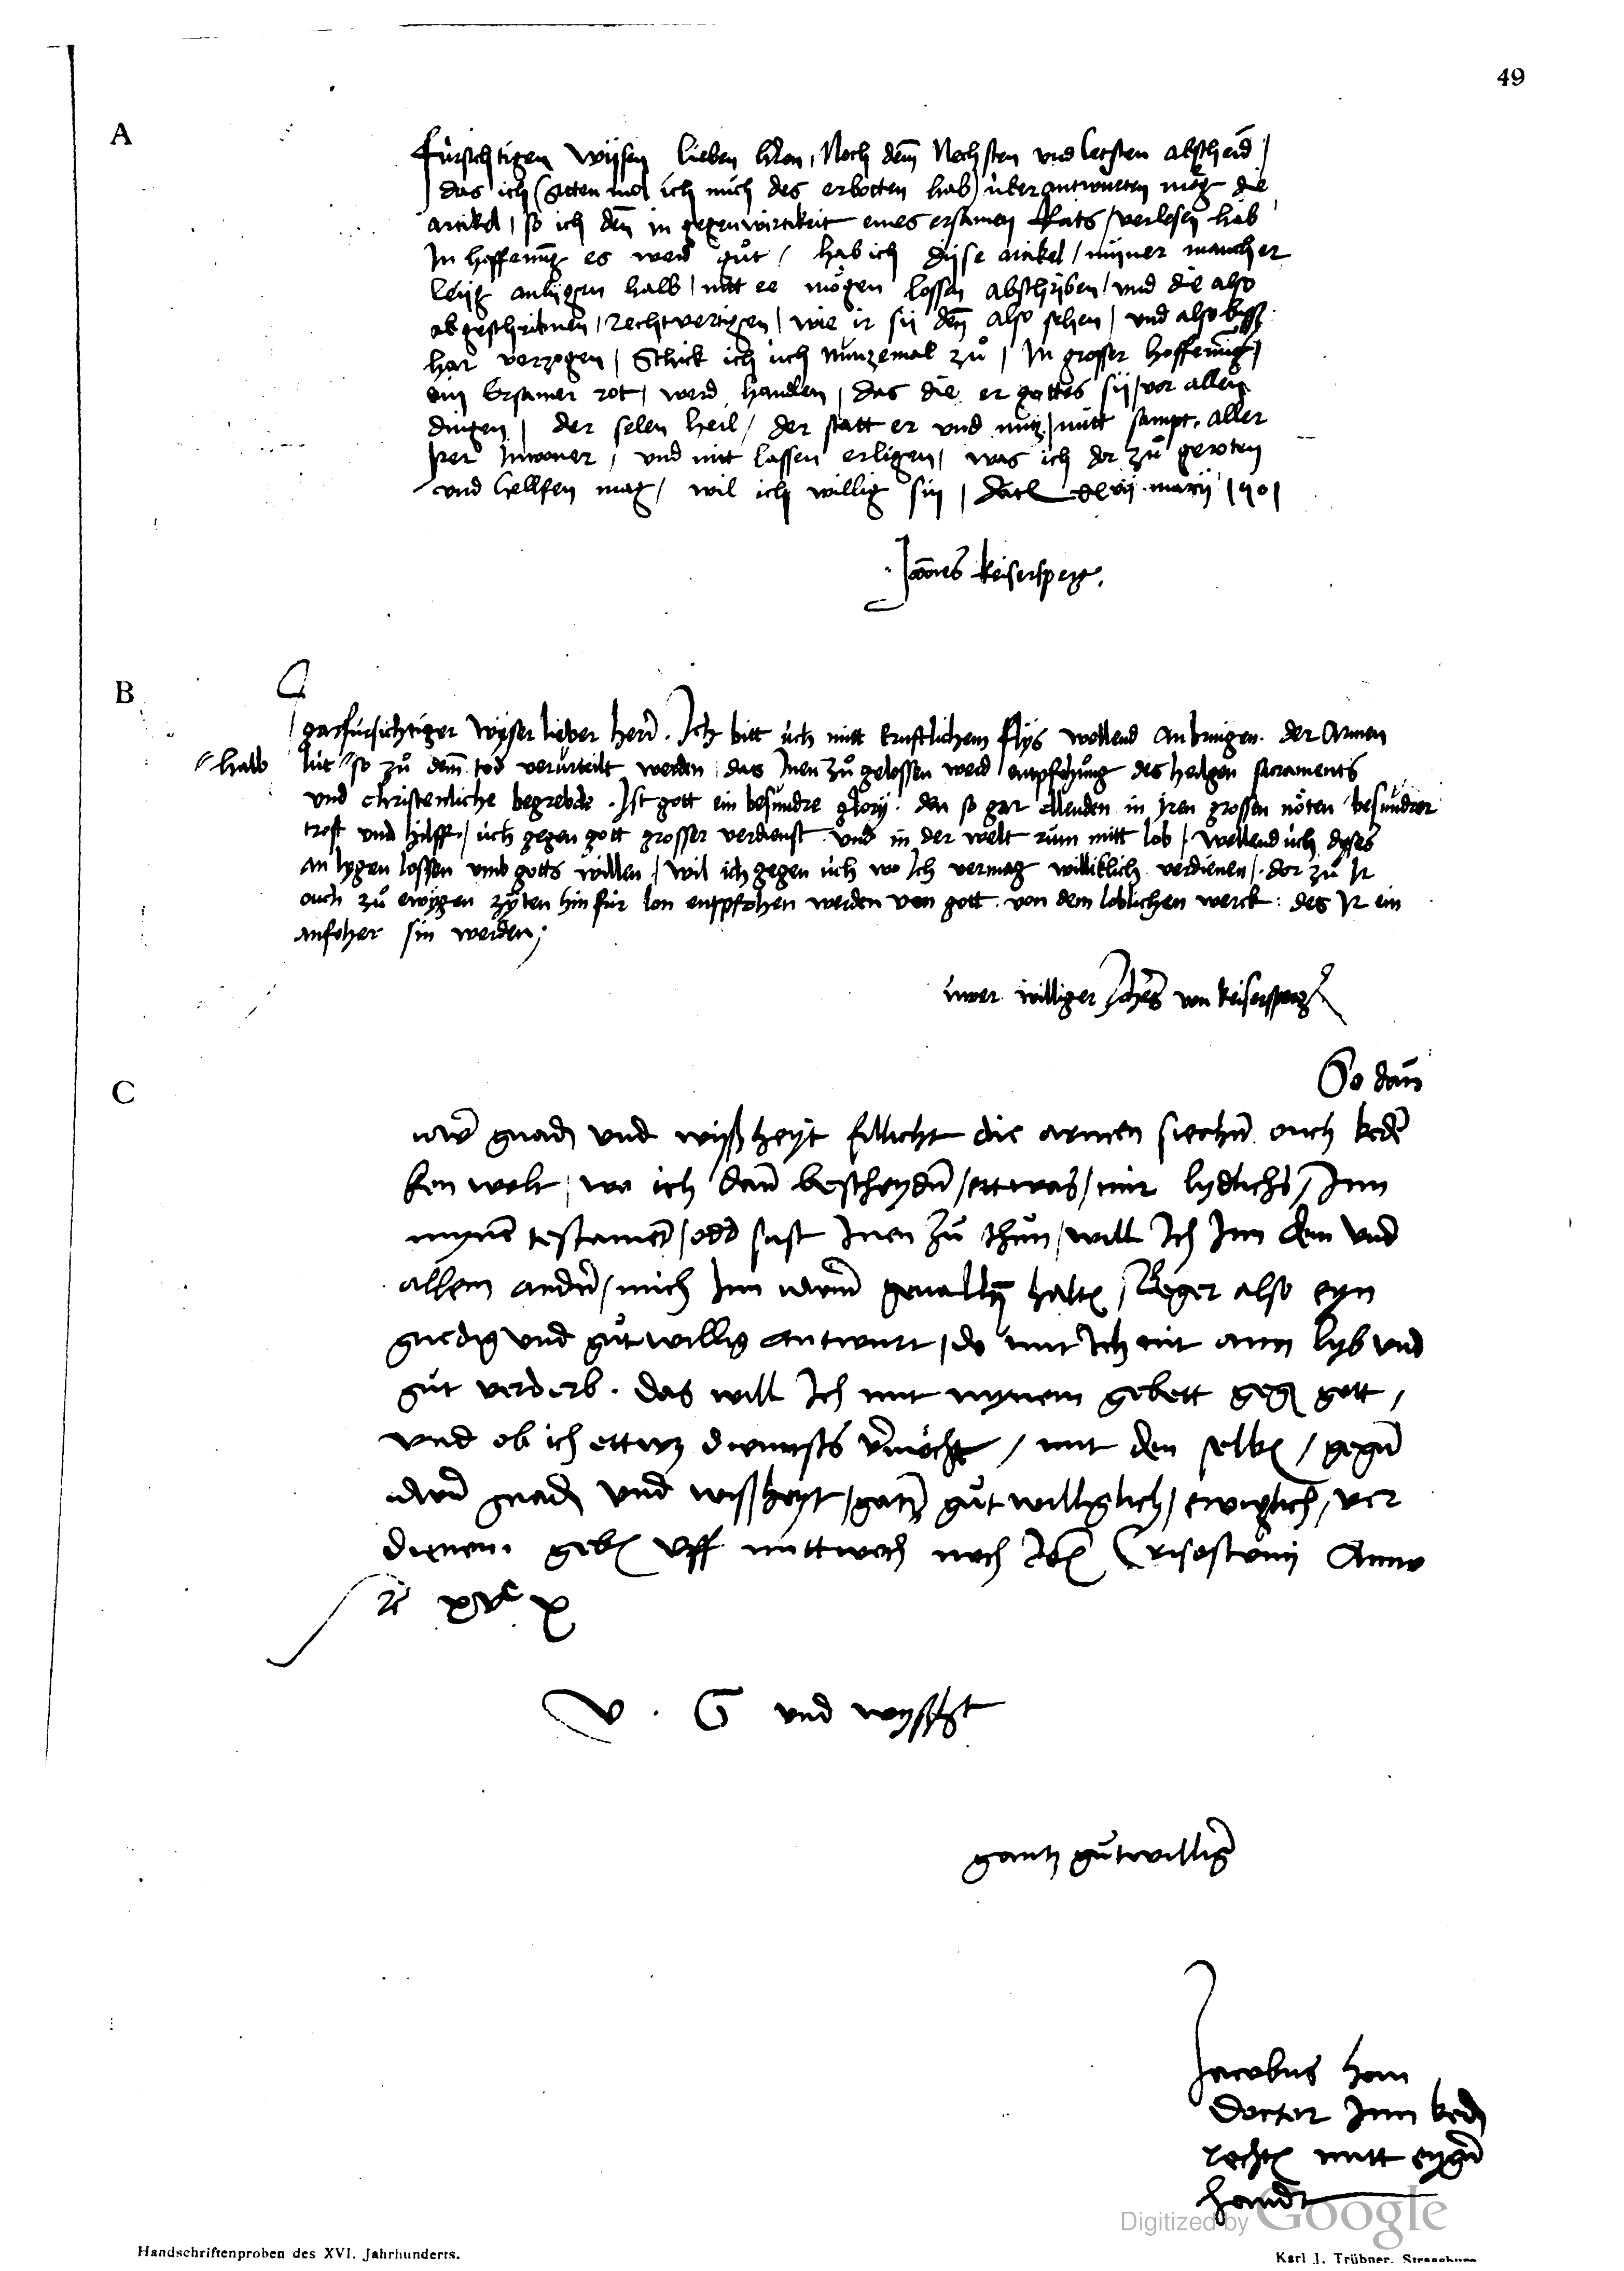 49
A
fürsichtigen wijsen lieben hren, Noch dem Nechsten und letsten abscheid /
das ich (sitten mol ich mich des erbotten hab) überantwurten mög die
artikel / so ich den in gegenwirtikeit eines ersamen Rats / verlesen hab
In hoffenung es werd gůt / hab ich dijse artikel / mijner mancher
leijg anligen halb / nitt ee mögen lossen abschriben / und die also
abgeschribnen / rechtvertigen / wie ir sij den also sehen / und also bissz
har verzogen / Schick ich üch nunzemal zů / In grosser hoffenung /
ein Ersamer rot / werd handlen / das die er gottes sij / vor allen
dingen / der selen heil / der statt er und nutz / mitt sampt aller
Irer Inwoner / und nitt lassen erligen / was ich dor zů geroten
und hellfen mag / wil ich willig sin /
Joannes keisersperg.
B
garfürsichtiger wyser lieber herr. Ich bitt üch mitt Ernstlichem flys wellend an bringen. der Armen
halb
lüt so zů dem tod verurteilt werden das Inen zů gelossen werd entpfehung des heilgen sacraments
und christenliche begrebde. Ist gott ein besundre glory. den so gar ellenden in jren grossen nöten besundrer
trost und hilff / üch gegen gott grosser verdienst und in der welt rům mitt lob / wellend üch dyses
an lygen lossen umb gotts willen / wil ich gegen üch wo Ich vermag williklich verdienen / dor zů Ir
ouch zů ewygen zyten hin für lon entpfohen werden von gott. von dem loblichen werck: des Ir ein
anfoher sin werden;
üwer williger Johes von keisersperg
C
So dan
uwer gnad und wyßheyt fillicht die armen siechen ouch beden
ken welt / wo ich dan bescheyden / ettwas / mir lydlichs / Inn
mynem testament / oder sust Inen zů thůn / will Ich Inn dem und
allem andern / mich Inn uwerm gevallen halten / Beger also eyn
gnedig und gůtwillig antwurt / do mit Ich nit ann lyb und
gůt verderb. das will Ich mit mynem gebett gegen gott /
und ob ich ettwz diensts vermöcht / mit den selben / gegen
uwer gnad und wißheyt / gantz gůtwilliglich / ewiglich / ver
dienen. geben uff mittwoch noch Crisostomi Anno
xvc x
v. G und wyßht
gantz gůtwillig
Jacobus hom
doctor Inn beden
rechten mitt eygner
handt
Digitized by Google
Handschriftenproben des XVI. Jahrhunderts.
Karl J. Trübner, Strassburg